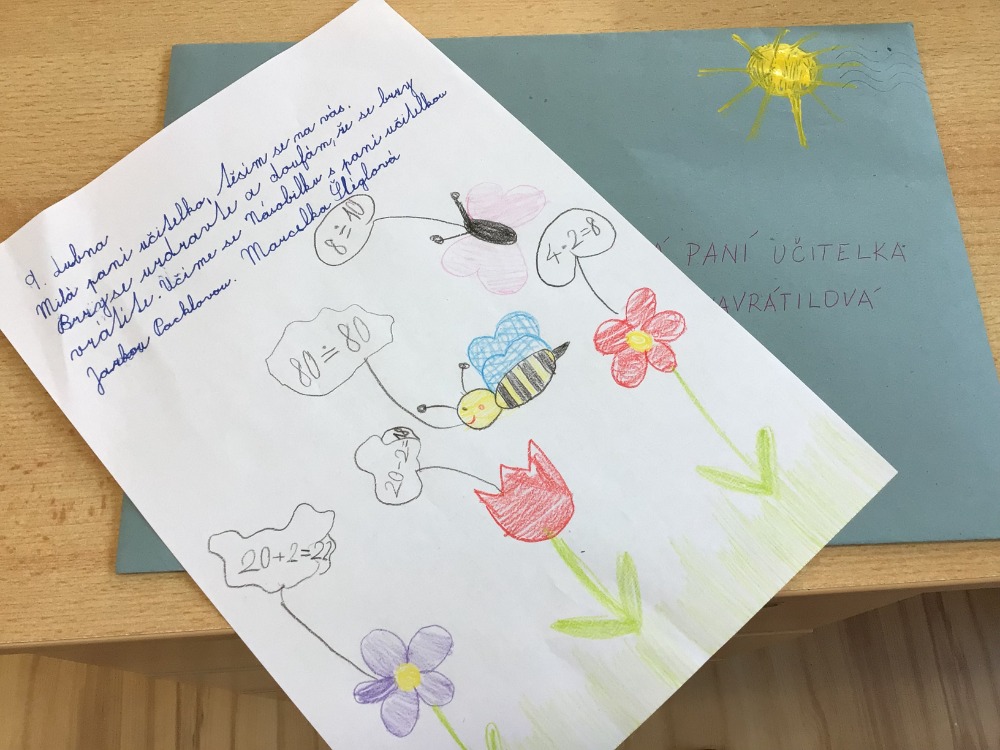 9. dubna
Milá paní učitelko, těsím se na vás.
Brzy se uzdravíte a doufám, že se brzy
vrátíte. Učíme se Násobilku s paní učitelkou
Jarkou Pachlovou. Marcelka Štiglová
8≐10
4·2=8
80≐80
20-2=18
20+2=22
PANÍ UČITELKA
NAVRÁTILOVÁ